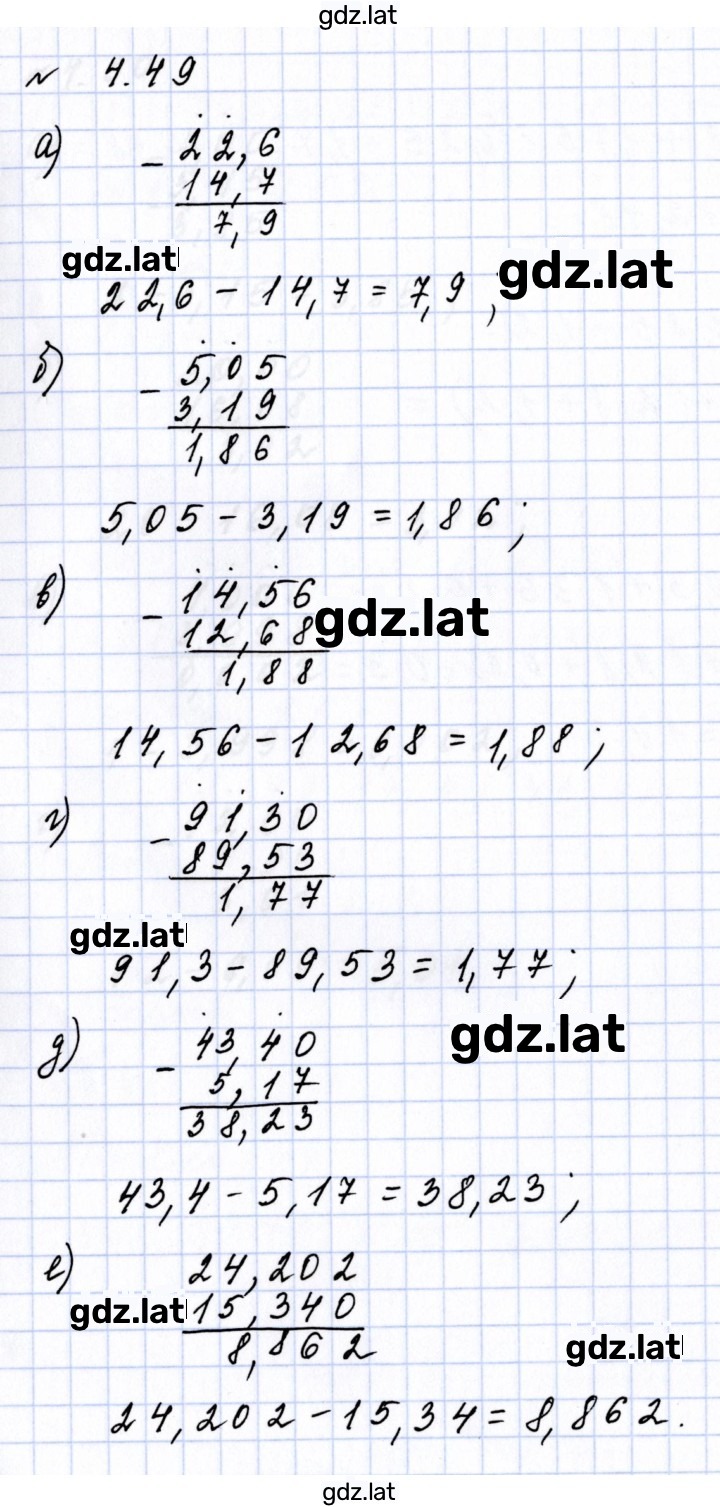 gdz.lat
№ 4.49
а) - 22,6
14,7
7,9
gdz.lat
gdz.lat
22,6 - 14,7 = 7,9,
б) - 5,05
3,19
1,86
5,05 - 3,19 = 1,86;
в) - 14,56
12,68
gdz.lat
1,88
14,56 - 12,68 = 1,88;
г) - 91,30
89,53
1,77
gdz.lat
91,3 - 89,53 = 1,77;
д) - 43,40
gdz.lat
5,17
38,23
43,4 - 5,17 = 38,23;
е) 24,202
gdz.lat
15,340
8,862
gdz.lat
24,202 - 15,34 = 8,862.
gdz.lat